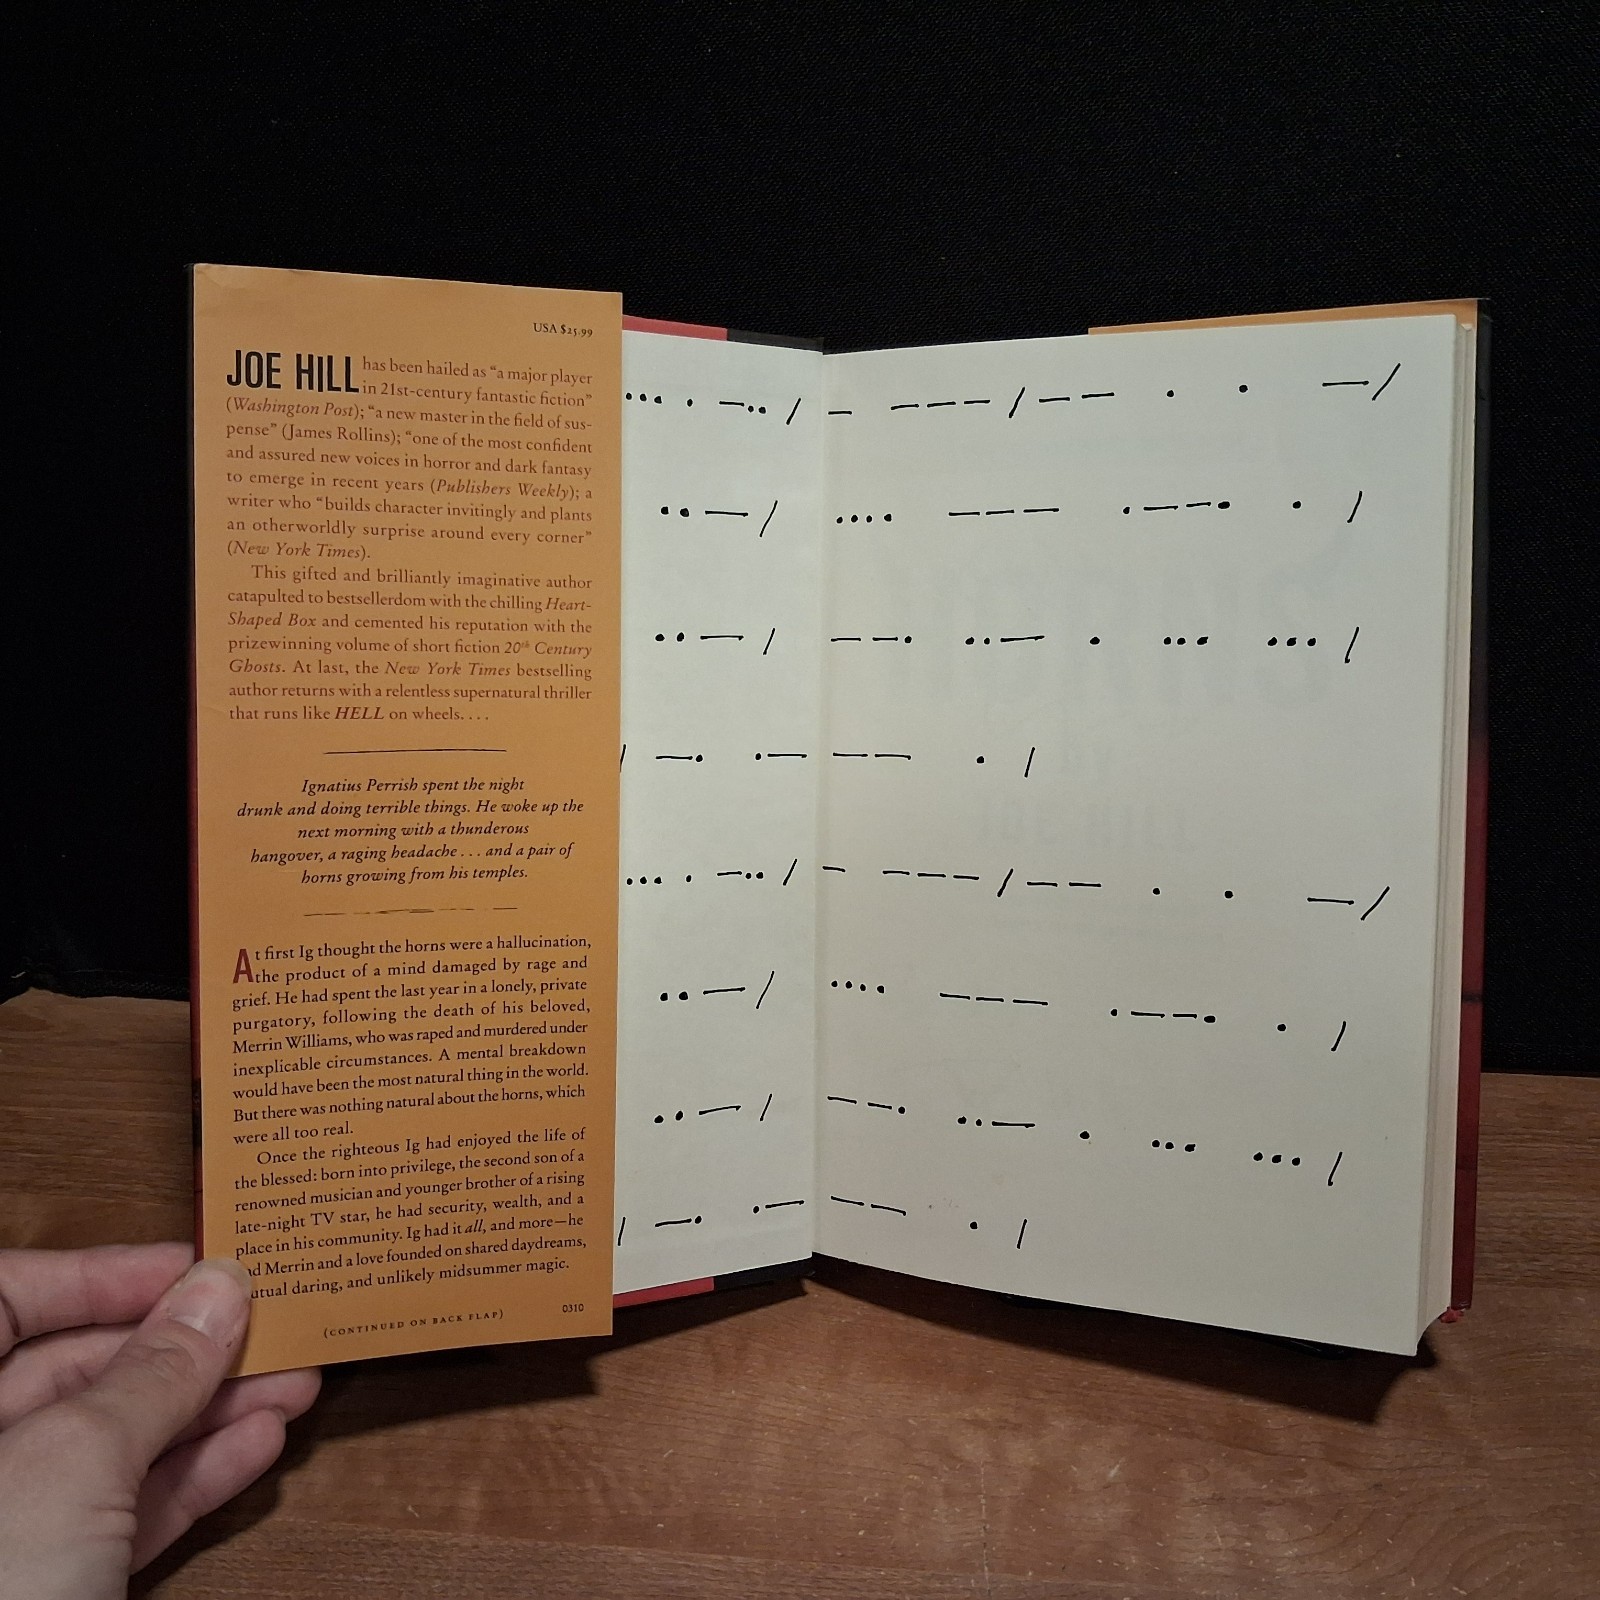 USA $25.99
JOE HILL has been hailed as “a major player
in 21st-century fantastic fiction”
(Washington Post); “a new master in the field of sus-
pense” (James Rollins); “one of the most confident
and assured new voices in horror and dark fantasy
to emerge in recent years (Publishers Weekly); a
writer who “builds character invitingly and plants
an otherworldly surprise around every corner”
(New York Times).
This gifted and brilliantly imaginative author
catapulted to bestsellerdom with the chilling Heart-
Shaped Box and cemented his reputation with the
prizewinning volume of short fiction 20th Century
Ghosts. At last, the New York Times bestselling
author returns with a relentless supernatural thriller
that runs like HELL on wheels. . . .
Ignatius Perrish spent the night
drunk and doing terrible things. He woke up the
next morning with a thunderous
hangover, a raging headache . . . and a pair of
horns growing from his temples.
At first Ig thought the horns were a hallucination,
the product of a mind damaged by rage and
grief. He had spent the last year in a lonely, private
purgatory, following the death of his beloved,
Merrin Williams, who was raped and murdered under
inexplicable circumstances. A mental breakdown
would have been the most natural thing in the world.
But there was nothing natural about the horns, which
were all too real.
Once the righteous Ig had enjoyed the life of
the blessed: born into privilege, the second son of a
renowned musician and younger brother of a rising
late-night TV star, he had security, wealth, and a
place in his community. Ig had it all, and more—he
had Merrin and a love founded on shared daydreams,
mutual daring, and unlikely midsummer magic.
(CONTINUED ON BACK FLAP)
0310
••• • —•• / — ——— / —— • • —/
•• — / •••• ——— •——• • /
•• — / ——• ••— • ••• ••• /
/ —• •— —— • /
••• • —•• / — ——— / —— • • —/
•• — / •••• ——— •——• • /
•• — / ——• ••— • ••• ••• /
/ —• •— —— • /